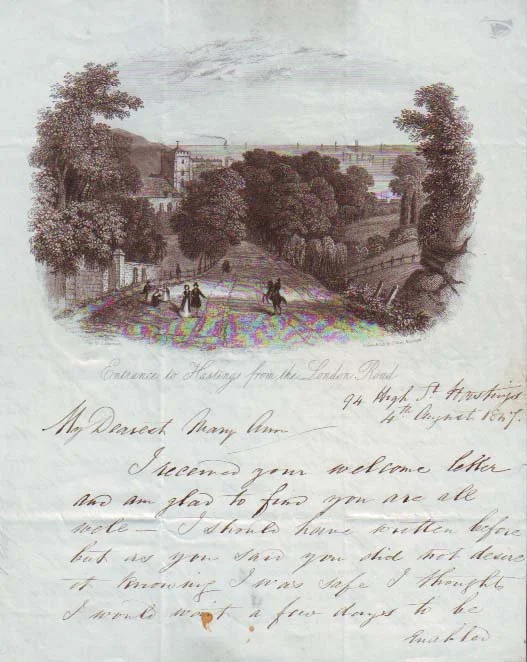 Entrance to Hastings from the London Road
94 High St Hastings
4th August 1847.
My Dearest Mary Ann
I received your welcome letter
and am glad to find you are all
well – I should have written before
but as you said you did not desire
it knowing I was safe I thought
I would wait a few days to be
Enabled